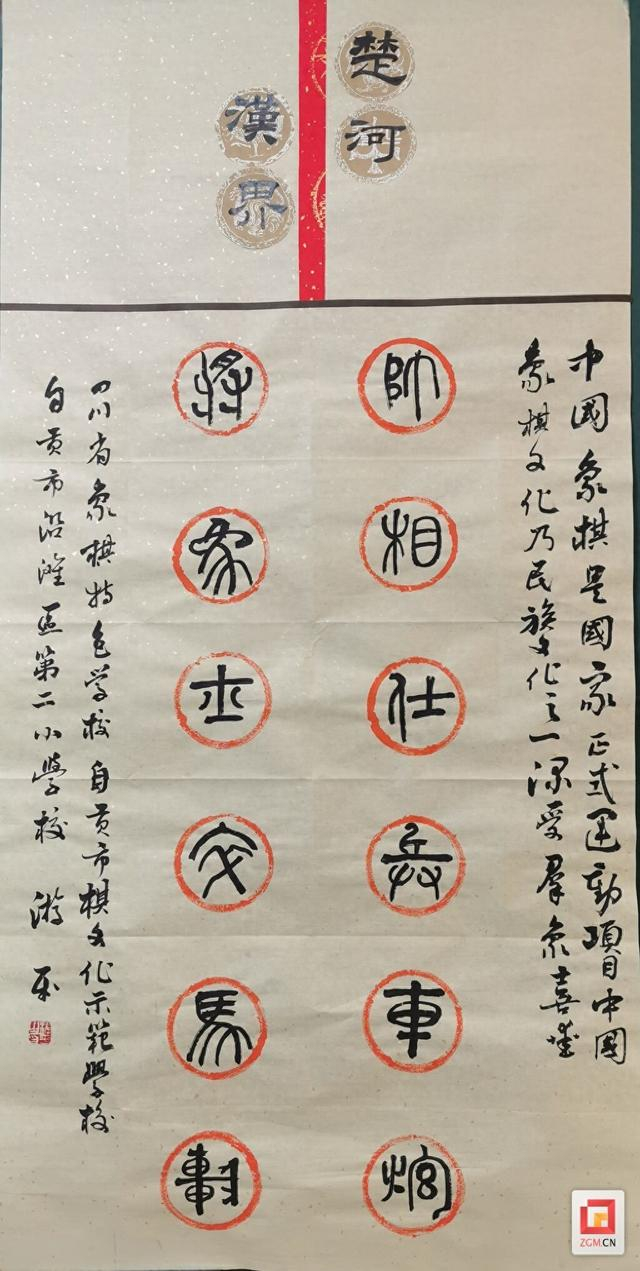 楚河
漢界
中國象棋是國家正式運動項目中國
象棋文化乃民族文化之一深受羣衆喜愛
帥
相
仕
兵
車
炮
將
象
士
卒
馬
四川省象棋特色学校自貢市棋文化示範學校
自貢市沿灘區第二小學校 游
ZGM.CN